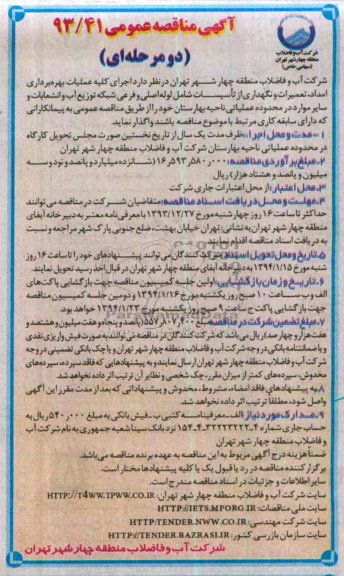 آگهی مناقصه عمومی ۹۳/۴۱
(دو مرحله‌ای)
شرکت آب و فاضلاب
منطقه چهار شهر تهران
(سهامی خاص)
شرکت آب و فاضلاب منطقه چهار شهر تهران در نظر دارد اجرای کلیه عملیات بهره‌برداری
امداد، تعمیرات و نگهداری از تأسیسات شامل لوله اصلی و فرعی شبکه توزیع آب و انشعابات و
سایر موارد در محدوده عملیاتی ناحیه بهارستان خود را از طریق مناقصه عمومی به پیمانکارانی
که دارای سابقه کاری مرتبط با موضوع مناقصه باشند واگذار نماید.
۱-مدت و محل اجرا: ظرف مدت یک سال از تاریخ نخستین صورت مجلس تحویل کارگاه
در محدوده عملیاتی ناحیه بهارستان شرکت آب و فاضلاب منطقه چهار شهر تهران
۲-مبلغ برآوردی مناقصه: ۱۶,۵۹۳,۵۸۰,۰۰۰ (شانزده میلیارد و پانصد و نود و سه
میلیون و پانصد و هشتاد هزار) ریال
۳-محل اعتبار: از محل اعتبارات جاری شرکت
۴-مهلت و محل دریافت اسناد مناقصه: متقاضیان شرکت در مناقصه می‌توانند
حداکثر تا ساعت ۱۶ روز چهارشنبه مورخ ۱۳۹۳/۱۲/۲۷ با معرفی‌نامه معتبر به دبیرخانه آبفای
منطقه چهار شهر تهران به نشانی: تهران خیابان بهشت، ضلع جنوبی پارک شهر مراجعه و نسبت
به دریافت اسناد مناقصه اقدام نمایند.
۵-تاریخ و محل تحویل اسناد: شرکت‌کنندگان می‌توانند پیشنهادهای خود را تا ساعت ۱۶ روز
شنبه مورخ ۱۳۹۴/۱/۱۵ به دبیرخانه آبفای منطقه چهار شهر تهران در قبال اخذ رسید تحویل نمایند.
۶-تاریخ و زمان بازگشایی: اولین جلسه کمیسیون مناقصه جهت بازگشایی پاکت‌های
الف و ب ساعت ۱۰ صبح روز یکشنبه مورخ ۱۳۹۴/۱/۱۶ و دومین جلسه کمیسیون مناقصه
جهت بازگشایی پاکت ج ساعت ۹ صبح روز یکشنبه مورخ ۱۳۹۴/۱/۲۳ خواهد بود.
۷-مبلغ تضمین شرکت در مناقصه: مبلغ ۵۵۷,۸۰۷,۴۰۰ (پانصد و پنجاه و هفت میلیون و هشتصد و
هفت هزار و چهارصد) ریال می‌باشد که شرکت‌کنندگان در مناقصه می‌توانند به صورت فیش واریزی نقدی
و یا ضمانتنامه بانکی در وجه شرکت آب و فاضلاب منطقه چهار شهر تهران و یا چک بانکی تضمینی در وجه
شرکت آب و فاضلاب منطقه چهار شهر تهران ارسال نمایند و به پیشنهادهایی که فاقد سپرده، سپرده‌های
مخدوش، سپرده‌های کمتر از میزان مقرر، چک شخصی و نظایر آن ترتیب اثر داده نخواهد شد.
۸-به پیشنهادهای فاقد امضاء، مشروط، مخدوش و پیشنهاداتی که بعد از مدت مقرر این آگهی
واصل شود، مطلقا ترتیب اثر داده نخواهد شد.
۹-مدارک مورد نیاز: الف-معرفینامه کتبی ب-فیش بانکی به مبلغ ۵۴۰,۰۰۰ ریال به
حساب جاری شماره نزد بانک سینا شعبه جمهوری به نام شرکت آب
و فاضلاب منطقه چهار شهر تهران
ضمناً هزینه درج آگهی مربوط به این مناقصه به عهده برنده مناقصه می‌باشد.
برگزار کننده مناقصه در رد یا قبول یک یا کلیه پیشنهادها مختار است.
سایر اطلاعات و جزئیات در اسناد مناقصه مندرج است.
سایت شرکت آب و فاضلاب منطقه چهار شهر تهران: HTTP://T4WW.TPWW.CO.IR
سایت ملی مناقصات: HTTP://IETS.MPORG.IR
سایت شرکت مهندسی: HTTP:/TENDER.NWW.CO.IR
سایت سازمان بازرسی کشور: HTTP://TENDER.BAZRASI.IR
شرکت آب و فاضلاب منطقه چهار شهر تهران